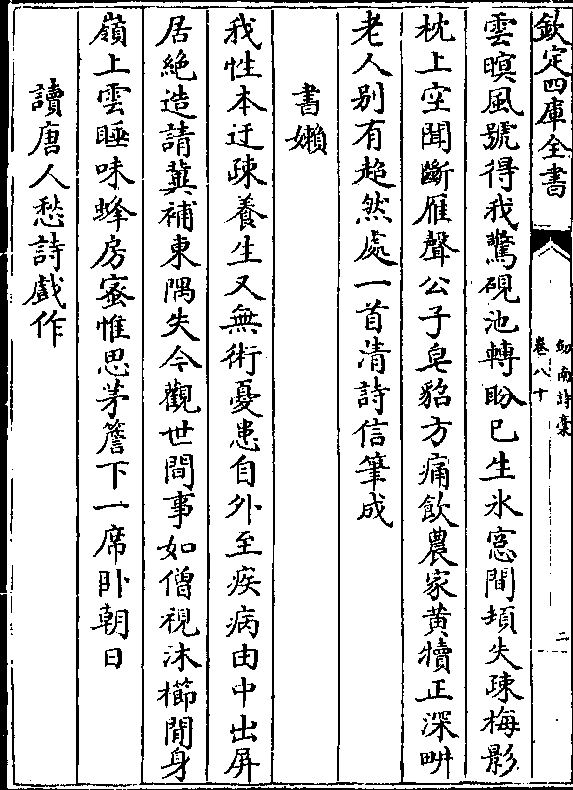 欽定四庫全書
劒南詩稾
卷八十
二
雲暝風號得我驚硯池轉盼已生氷窓間頓失疎梅影
枕上空聞斷雁聲公子皂貂方痛飲農家黄犢正深畊
老人别有超然處一首清詩信筆成
書嬾
我性本迂疎養生又無術憂患自外至疾病由中出屏
居絶造請冀補東隅失今觀世間事如僧視沐櫛閒身
嶺上雲睡味蜂房蜜惟思茅簷下一席卧朝日
讀唐人愁詩戲作